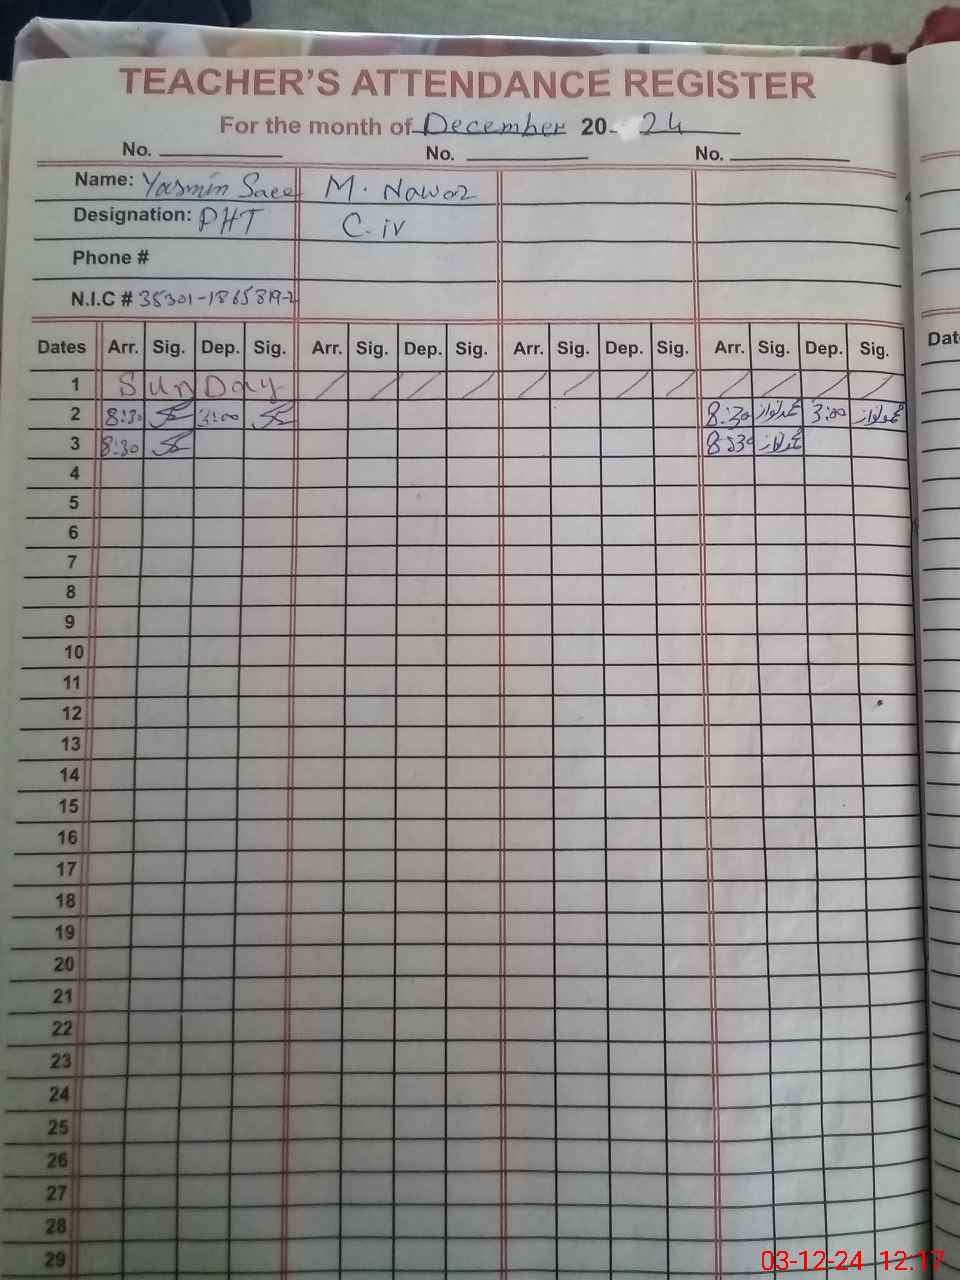 TEACHER'S ATTENDANCE REGISTER
For the month of December 20 24
No. No. No.
Name: Yasmin Saee M. Nawaz
Designation: PHT C-iv
Phone #
N.I.C #
Dates Arr. Sig. Dep. Sig. Arr. Sig. Dep. Sig. Arr. Sig. Dep. Sig. Arr. Sig. Dep. Sig. Dat
1 SunDay
2 8:30 3:00 8:30 محمد نواز 3:00 محمد نواز
3 8:30 8:30 محمد نواز
4
5
6
7
8
9
10
11
12
13
14
15
16
17
18
19
20
21
22
23
24
25
26
27
28
29
03-12-24 12:17